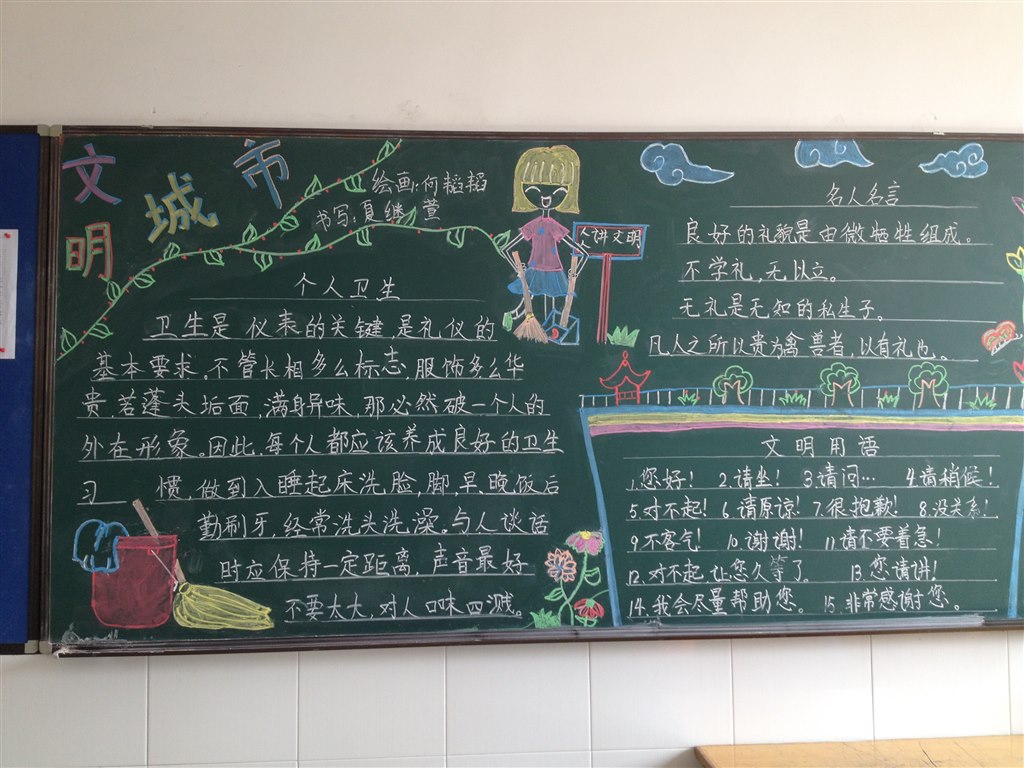 文明城市
绘画:何韬韬
书写:夏继萱
个人卫生
卫生是仪表的关键是礼仪的
基本要求。不管长相多么标志,服饰多么华
贵,若蓬头垢面,满身异味,那必然破一个人的
外在形象。因此,每个人都应该养成良好的卫生
习 惯,做到入睡起床洗脸,脚,早、晚饭后
勤刷牙,经常洗头洗澡。与人谈话
时应保持一定距离,声音最好
不要太大,对人口味四溅。
人讲文明
名人名言
良好的礼貌是由微牺牲组成。
不学礼,无以立。
无礼是无知的私生子。
凡人之所以贵为禽兽者,以有礼也。
文明用语
1.您好! 2.请坐! 3.请问… 4.请稍候!
5.对不起! 6.请原谅! 7.很抱歉! 8.没关系!
9.不客气! 10.谢谢! 11.请不要着急!
12.对不起,让您久等了。 13.您请讲!
14.我会尽量帮助您。 15.非常感谢您。